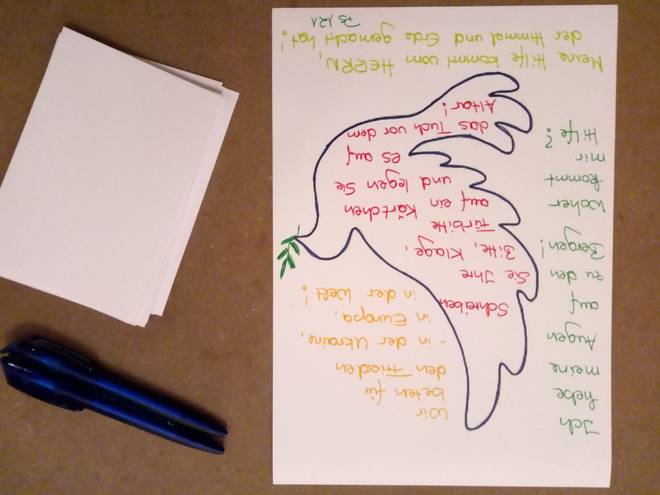 Ich
hebe
meine
Augen
auf
zu den
Bergen!
Woher
kommt
mir
Hilfe?
Wir
beten für
den Frieden
- in der Ukraine,
in Europa,
in der Welt!
Schreiben
Sie Ihre
Bitte, Klage,
Fürbitte
auf ein Kärtchen
und legen Sie
es auf
das Tuch vor dem
Altar!
Meine Hilfe kommt vom HERRN,
der Himmel und Erde gemacht hat!
Ps 121